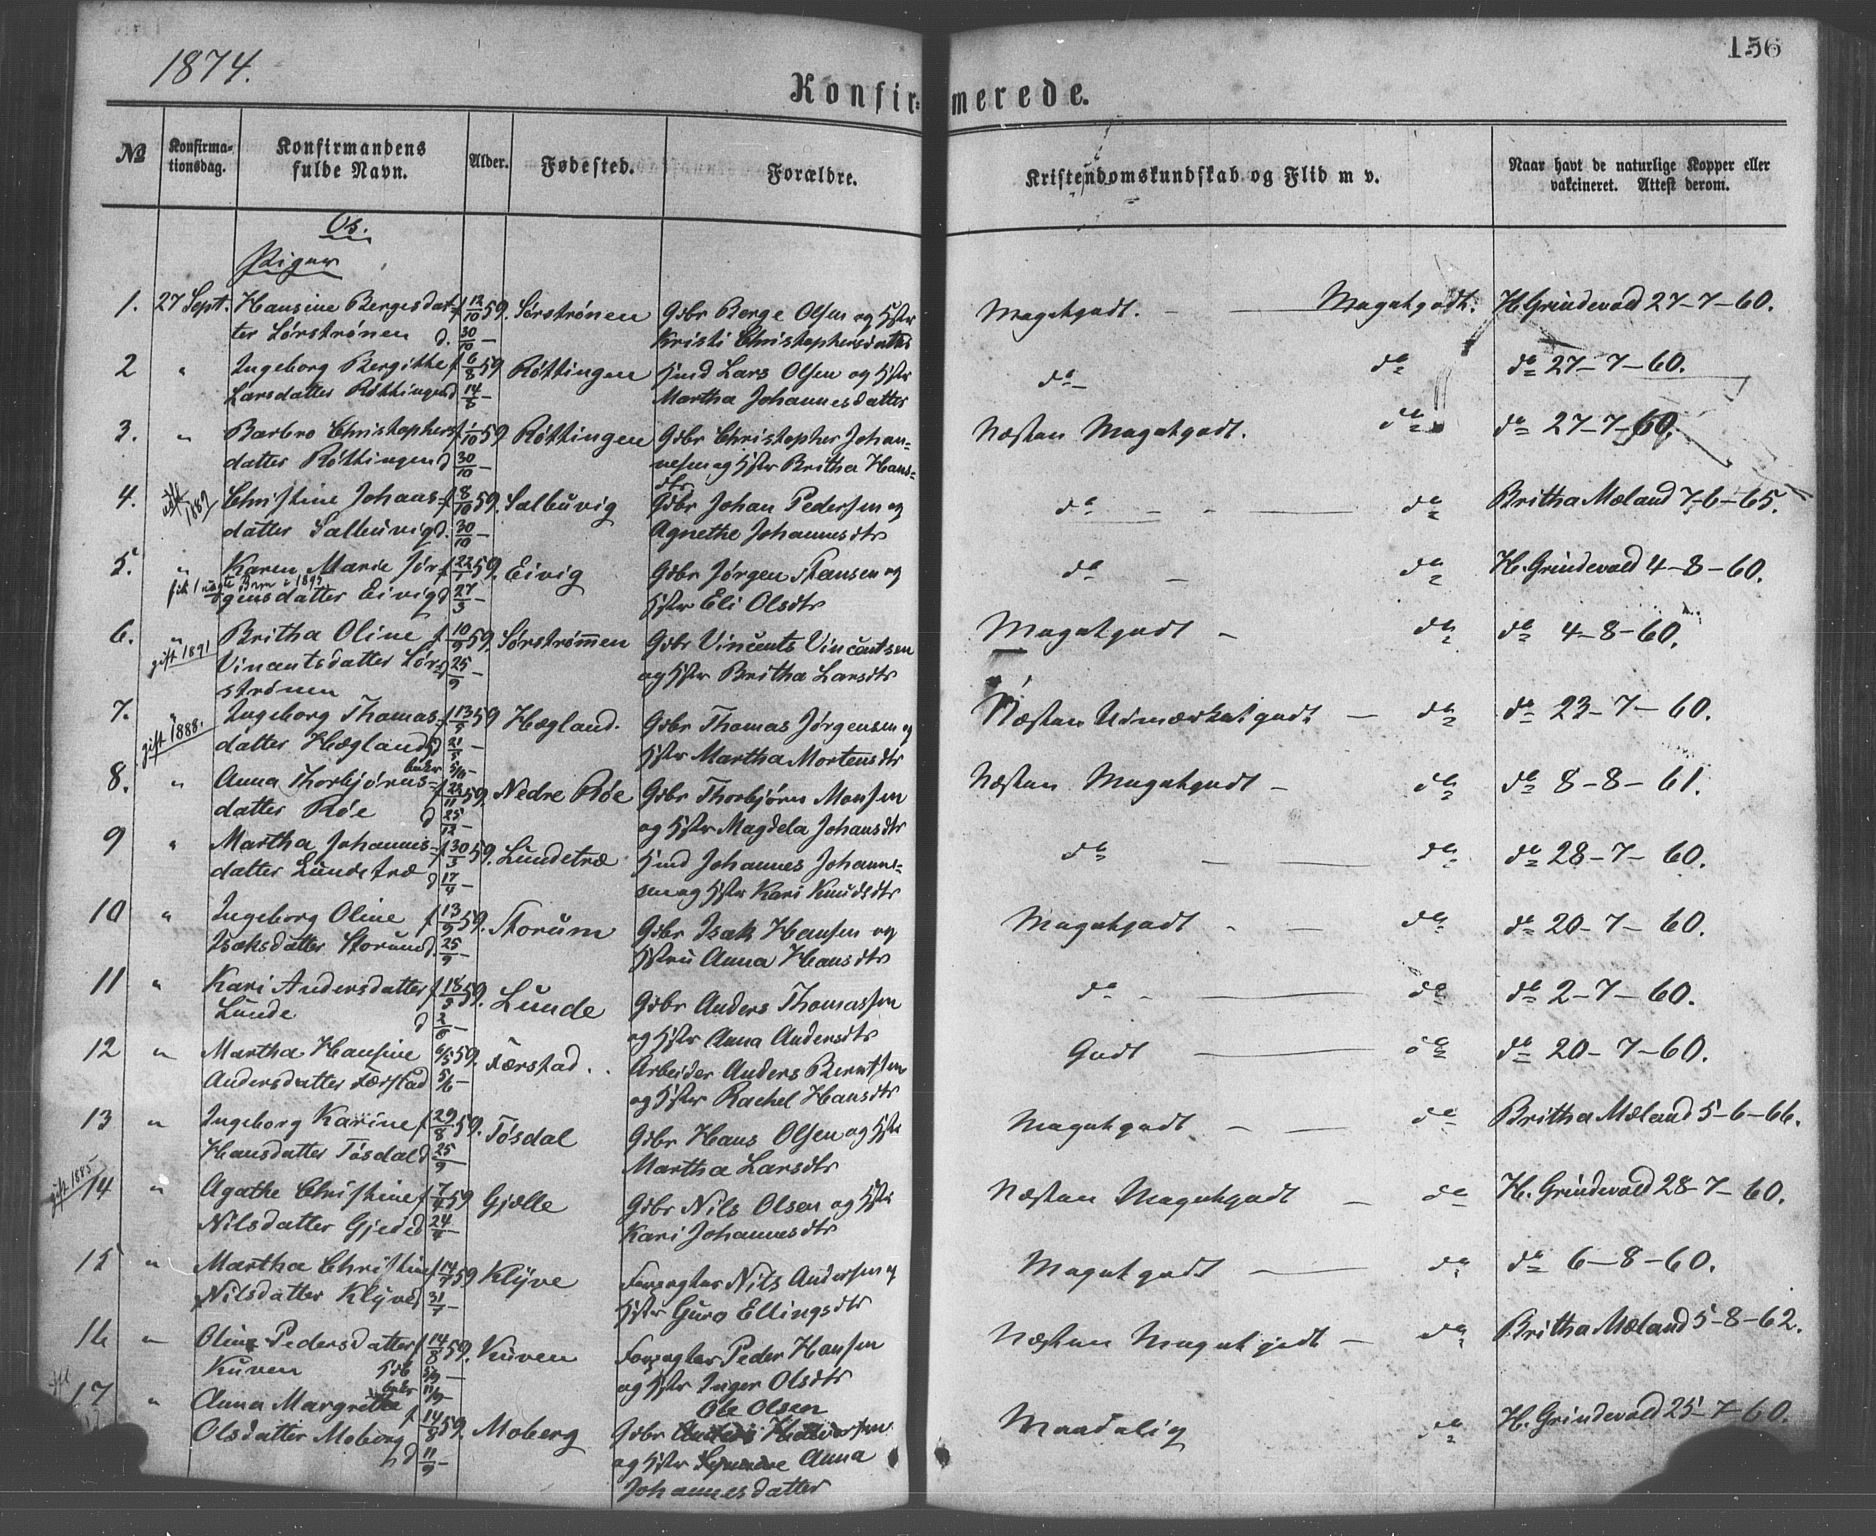 1874.
156
Konfirmerede.
№
Konfirmationsdag.
Konfirmandens fulde Navn.
Alder.
Fødested.
Forældre.
Kristendomskundskab og Flid m v.
Naar havt de naturlige Kopper eller vakcineret. Attest derom.
Os.
Piger
1. 27 Sept. Hansine Bergesdat- f 12/10 59. Sørstrønen Gdbr Berge Olsen og Hstr Megetgodt. — Megetgodt. H. Grindevold 27-7-60.
ter Sørstrønen d. 30/10 — Kristi Christophersdatter
2 " Ingeborg Bergithe f 6/8 59 Røttingen Hmd Lars Olsen og Hstr do — do do 27-7-60.
Larsdatter Røttingen d 14/8 — Martha Johannesdatter
3. " Barbro Christophers- f 1/10 59 Røttingen Gdbr Christopher Johan- Næsten Megetgodt. do do 27-7-60.
datter Røttingen d 30/10 — nesen og Hstr Britha Hans-
dtr
4. 1889 Christine Johans- f 8/10 59. Salbuvig Gdbr Johan Pedersen og do — do Britha Mæland 7-6-65.
datter Salbuvig d. 30/10 — Agnethe Johannesdtr
5. " Karen Marie Jør- f 22/1 59. Eivig Gdbr Jørgen Hansen og do — do H. Grindevold 4-8-60.
gensdatter Eivig d 27/3 — Hstr Eli Olsdtr
6. " Britha Oline f 10/9 59. Sørstrømen Gdbr Vincents Vincentsen Megetgodt — do do 4-8-60.
gift 1891 Vincentsdatter Sør- d 25/9 — og Hstr Britha Larsdtr
strønen
7. " Ingeborg Thomas- f 13/5 59 Hægland. Gdbr Thomas Jørgensen og Næsten Udmærketgodt — do do 23-7-60.
gift 1888. datter Hægland d 21/5 — Hstr Martha Mortensdtr
8. " Anna Thorbjørns- f 22/11 59. Nedre Røe Gdbr Thorbjørn Monsen Næsten Megetgodt — do do 8-8-61.
datter Røe d 25/12 — og Hstr Magdela Johansdtr
9 " Martha Johannes- f 30/3 59. Lundetræ Hmd Johannes Johanne- do — do do 28-7-60.
datter Lundetræ d 17/4 — sen og Hstr Kari Knudsdtr
10 " Ingeborg Oline f 13/9 59. Storum Gdbr Isak Hansen og Megetgodt — do do 20-7-60.
Isaksdatter Storum d. 25/9 — Hstru Anna Hansdtr
11 " Kari Andersdatter f 18/5 59. Lunde Gdbr Anders Thomassen do — do do 2-7-60.
Lunde d 2/6 — og Hstr Anna Andersdtr
12 " Martha Hansine 6/5 59. Færstad. Arbeider Anders Berntsen Godt — do do 20-7-60.
Andersdatter Færstad 5/6 — og Hstr Rachel Hansdtr
13 " Ingeborg Karine f 29/8 59. Tøsdal Gdbr Hans Olsen og Hstr Megetgodt — do Britha Mæland 5-6-66.
Hansdatter Tøsdal d 25/9 — Martha Larsdtr
gift 1885 14 " Agathe Christine f 7/4 59 Gjelle Gdbr Nils Olsen og Hstr Næsten Megetgodt — do H. Grindevold 28-7-60.
Nilsdatter d 24/4 — Kari Johannesdtr
15 " Martha Christine f 14/7 59 Klyve Forpagter Nils Andersen og Megetgodt — do do 6-8-60.
Nilsdatter Klyve d 31/7 — Hstr Guro Ellingsdtr
16 " Oline Pedersdatter f 14/8 59. Kuven Forpagter Peder Hansen Næsten Meget godt — do Britha Mæland 5-8-62.
Kuven — og Hstr Inger Olsdtr
17 " Anna Margrethe f 14/8 59. Moberg Gdbr Ole Olsen Maadelig do H. Grindevold 25-7-60.
Olsdatter Moberg d 11/9 — og Hstr Anna
Johannesdatter